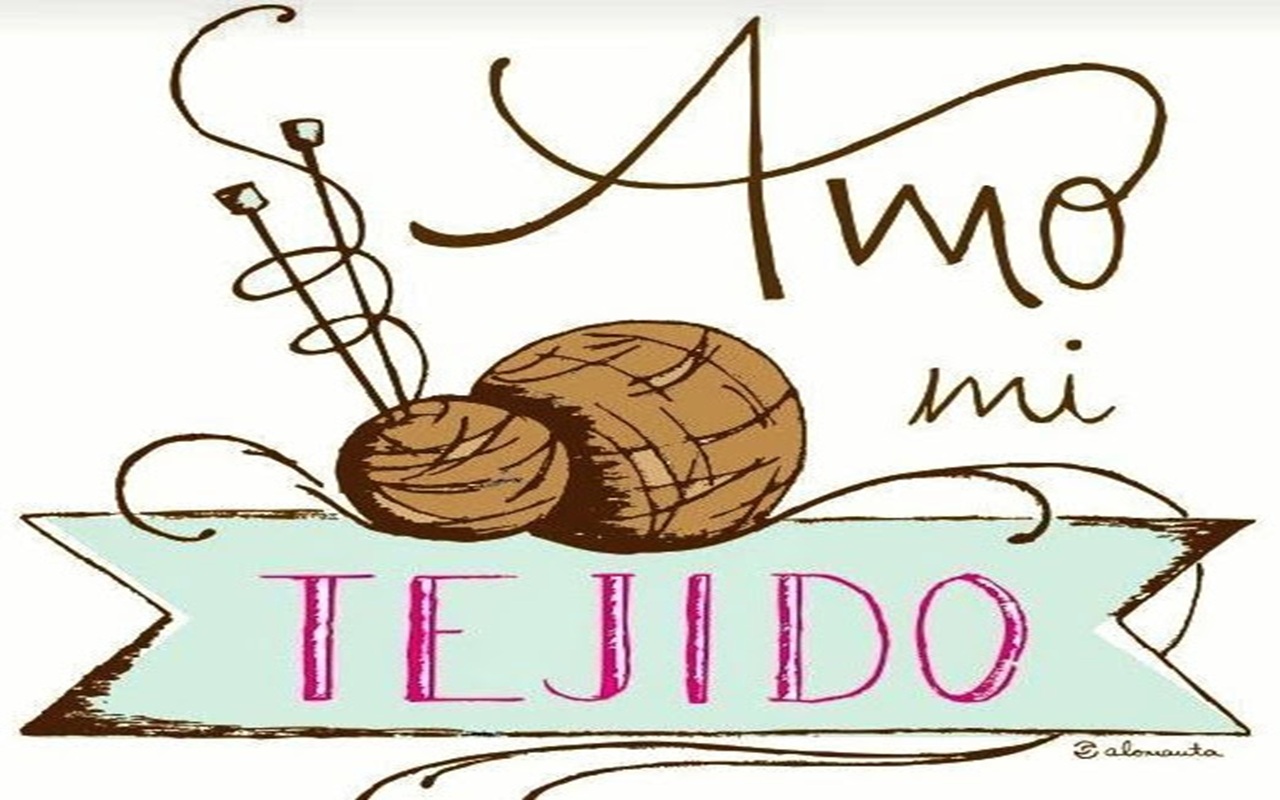 Amo
mi
TEJIDO
alonauta